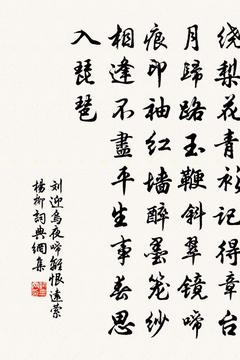 绕梨花青衫记得章台
月歸路玉鞭斜翠镜啼
痕印袖红墙醉墨笼纱
相逢不盡平生事春思
入琵琶
刘迎烏夜啼離恨遠縈
楊柳詞典網集